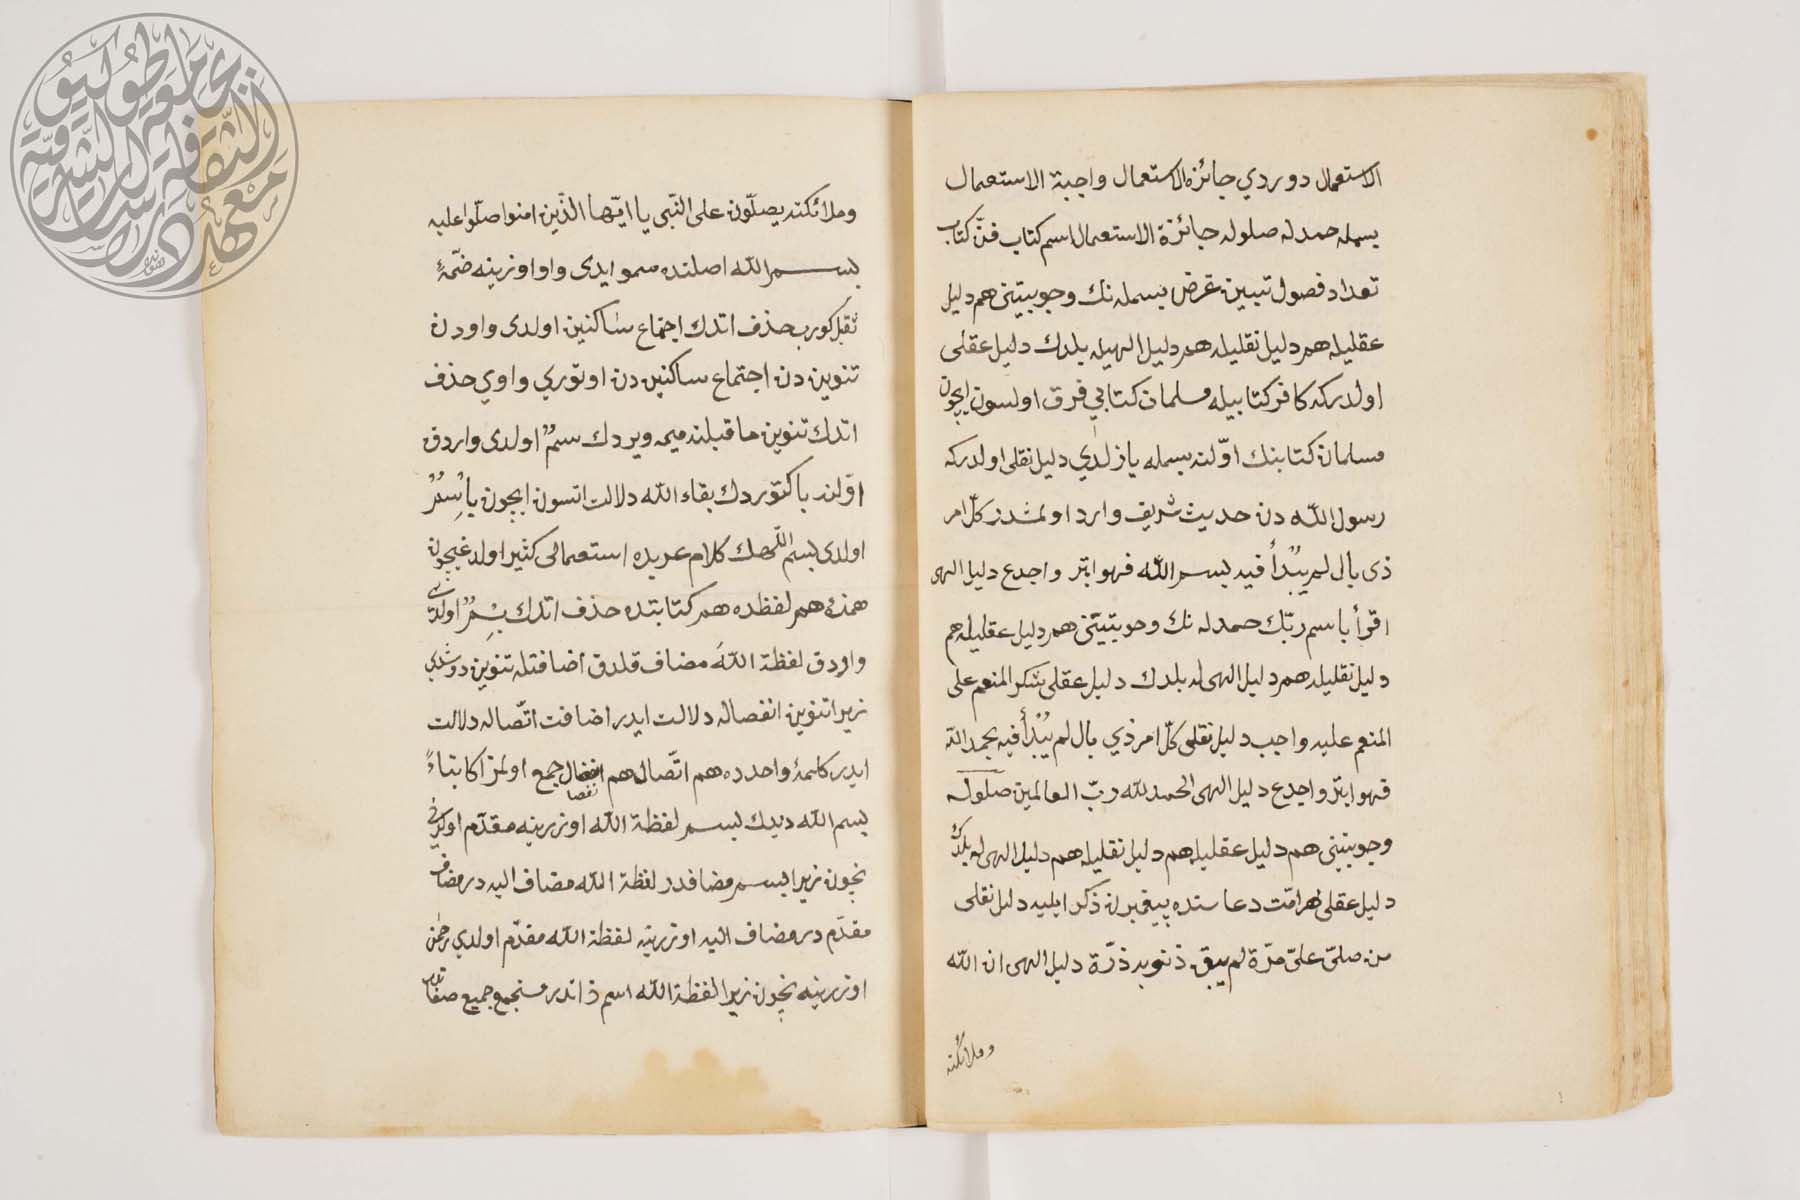 الاستعمال دوردي جائزة الاستعمال واجبة الاستعمال
بسمله حمدله صلوله جائزة الاستعمال اسم كتاب فنّ كتاب
تعداد فصول تبيين غرض بسمله نك وجوبيتنى هم دليل
عقليله هم دليل نقليله هم دليل الهيله بلدك دليل عقلى
اولدركه كافر كتابيله مسلمان كتابي فرق اولسون ايچون
مسلمان كتابنك اوّلنه بسمله يازلدي دليل نقلى اولدركه
رسول الله دن حديث شريف وارد اولمشدر كلّ امر
ذى بال لم يُبْدأ فيه بسم الله فهو ابتر واجدع دليل الهى
اقرأ باسم ربّك حمدله نك وجوبيتنى هم دليل عقليله هم
دليل نقليله هم دليل الهى له بلدك دليل عقلى شكر المنعم على
المنعم عليه واجب دليل نقلى كلّ امر ذي بال لم يُبْدأ فيه بحمد الله
فهو ابتر واجدع دليل الهى الحمد لله ربّ العالمين صلوله
وجوبيتنى هم دليل عقليله هم دليل نقليله هم دليل الهى له بلدك
دليل عقلى هر امّت دعاسنده پيغمبرن ذكر ايليه دليل نقلى
من صلىّ علىّ مرّة لم يبق ذنوبه ذرّة دليل الهى ان الله
وملائكته
وملائكته يصلّون على النّبى يا ايّها الذّين امنوا صلّوا عليه
بسم الله اصلنده سمو ايدى واو اوزرينه ضمّۀ
ثقيل كورب حذف اتدك اجتماع ساكنين اولدى واودن
تنوين دن اجتماع ساكنين دن اوتوري واوي حذف
اتدك تنوين ماقبلنه ميمه ويردك سمٌ اولدى واردق
اوّلنه با كتوردك بقاء الله دلالت اتسون ايچون باسمٌ
اولدى بسم اللّهك كلام عربده استعمالى كثير اولدغيچون
همزۀ هم لفظده هم كتابتده حذف اتدك بِسْمٌ اولدى
واردق لفظة الله مضاف قلدق اضافتله تنوين دوشدي
زيرا تنوين انفصاله دلالت ايدر اضافت اتّصاله دلالت
ايدر كلمۀ واحدده هم اتّصال هم انفصال جمع اولمز اكا بناءً
بسم الله ديدك بسم لفظة الله اوزرينه مقدّم اولدى
نچون زيرا بسم مضافدر لفظة الله مضاف اليه در مضاف
مقدّم در مضاف اليه اوزرينه لفظة الله مقدّم اولدي رحمن
اوزرينه نچون زيرا لفظة الله اسم ذاتدر مستجمع جميع صفاتدن